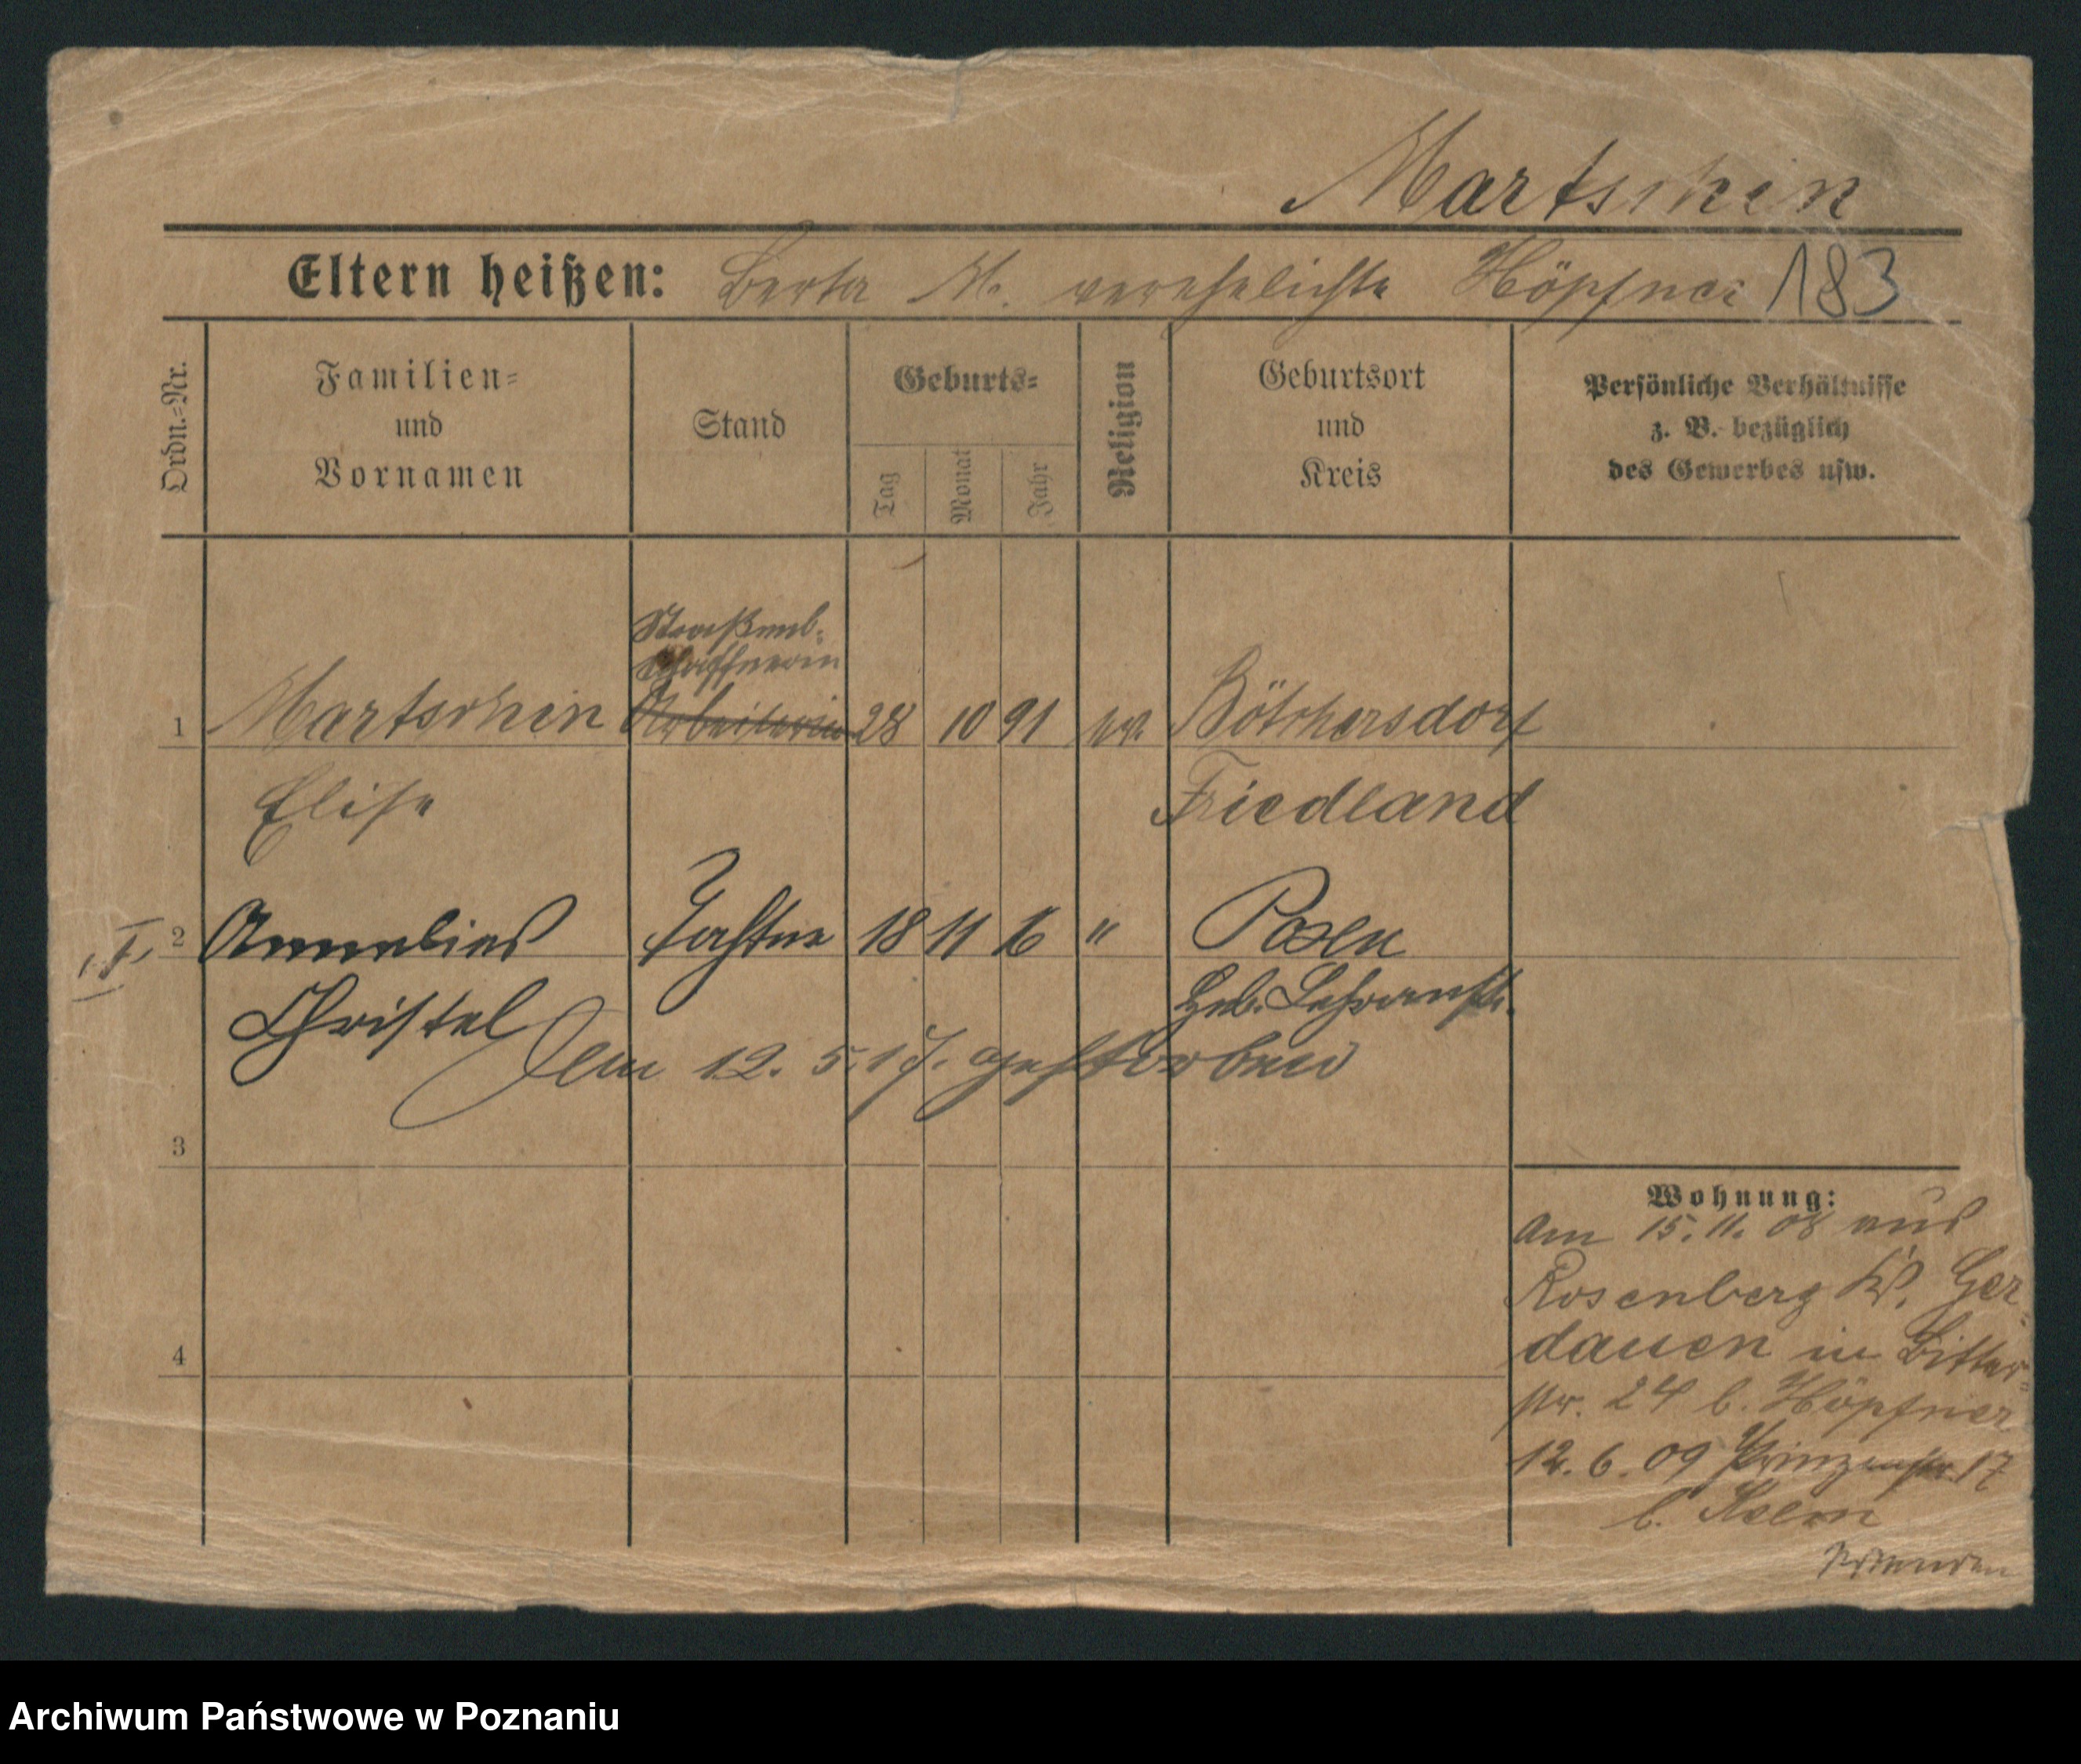 Martschin
Eltern heißen: Berta M. verehelichte Höpfner 183
Ordn.=Nr.
Familien=
und
Vornamen
Stand
Geburts=
Tag
Monat
Jahr
Religion
Geburtsort
und
Kreis
Persönliche Verhältnisse
z. B. bezüglich
des Gewerbes usw.
Straßenb.
Schaffnerin
1 Martschin Arbeiterin 28 10 91 ev. Böttchersdorf
Elise Friedland
2 Annelies Tochter 18 11 16 " Posen
Christel Heb. Lehranst.
am 12. 5. 17. gestorben
3
4
Wohnung:
Am 15. 11. 08 aus
Rosenberg Kr. Ger=
dauen in Bitter=
str. 24 b. Höpfner
12. 6. 09 Prinzenstr. 17
b.
Archiwum Państwowe w Poznaniu